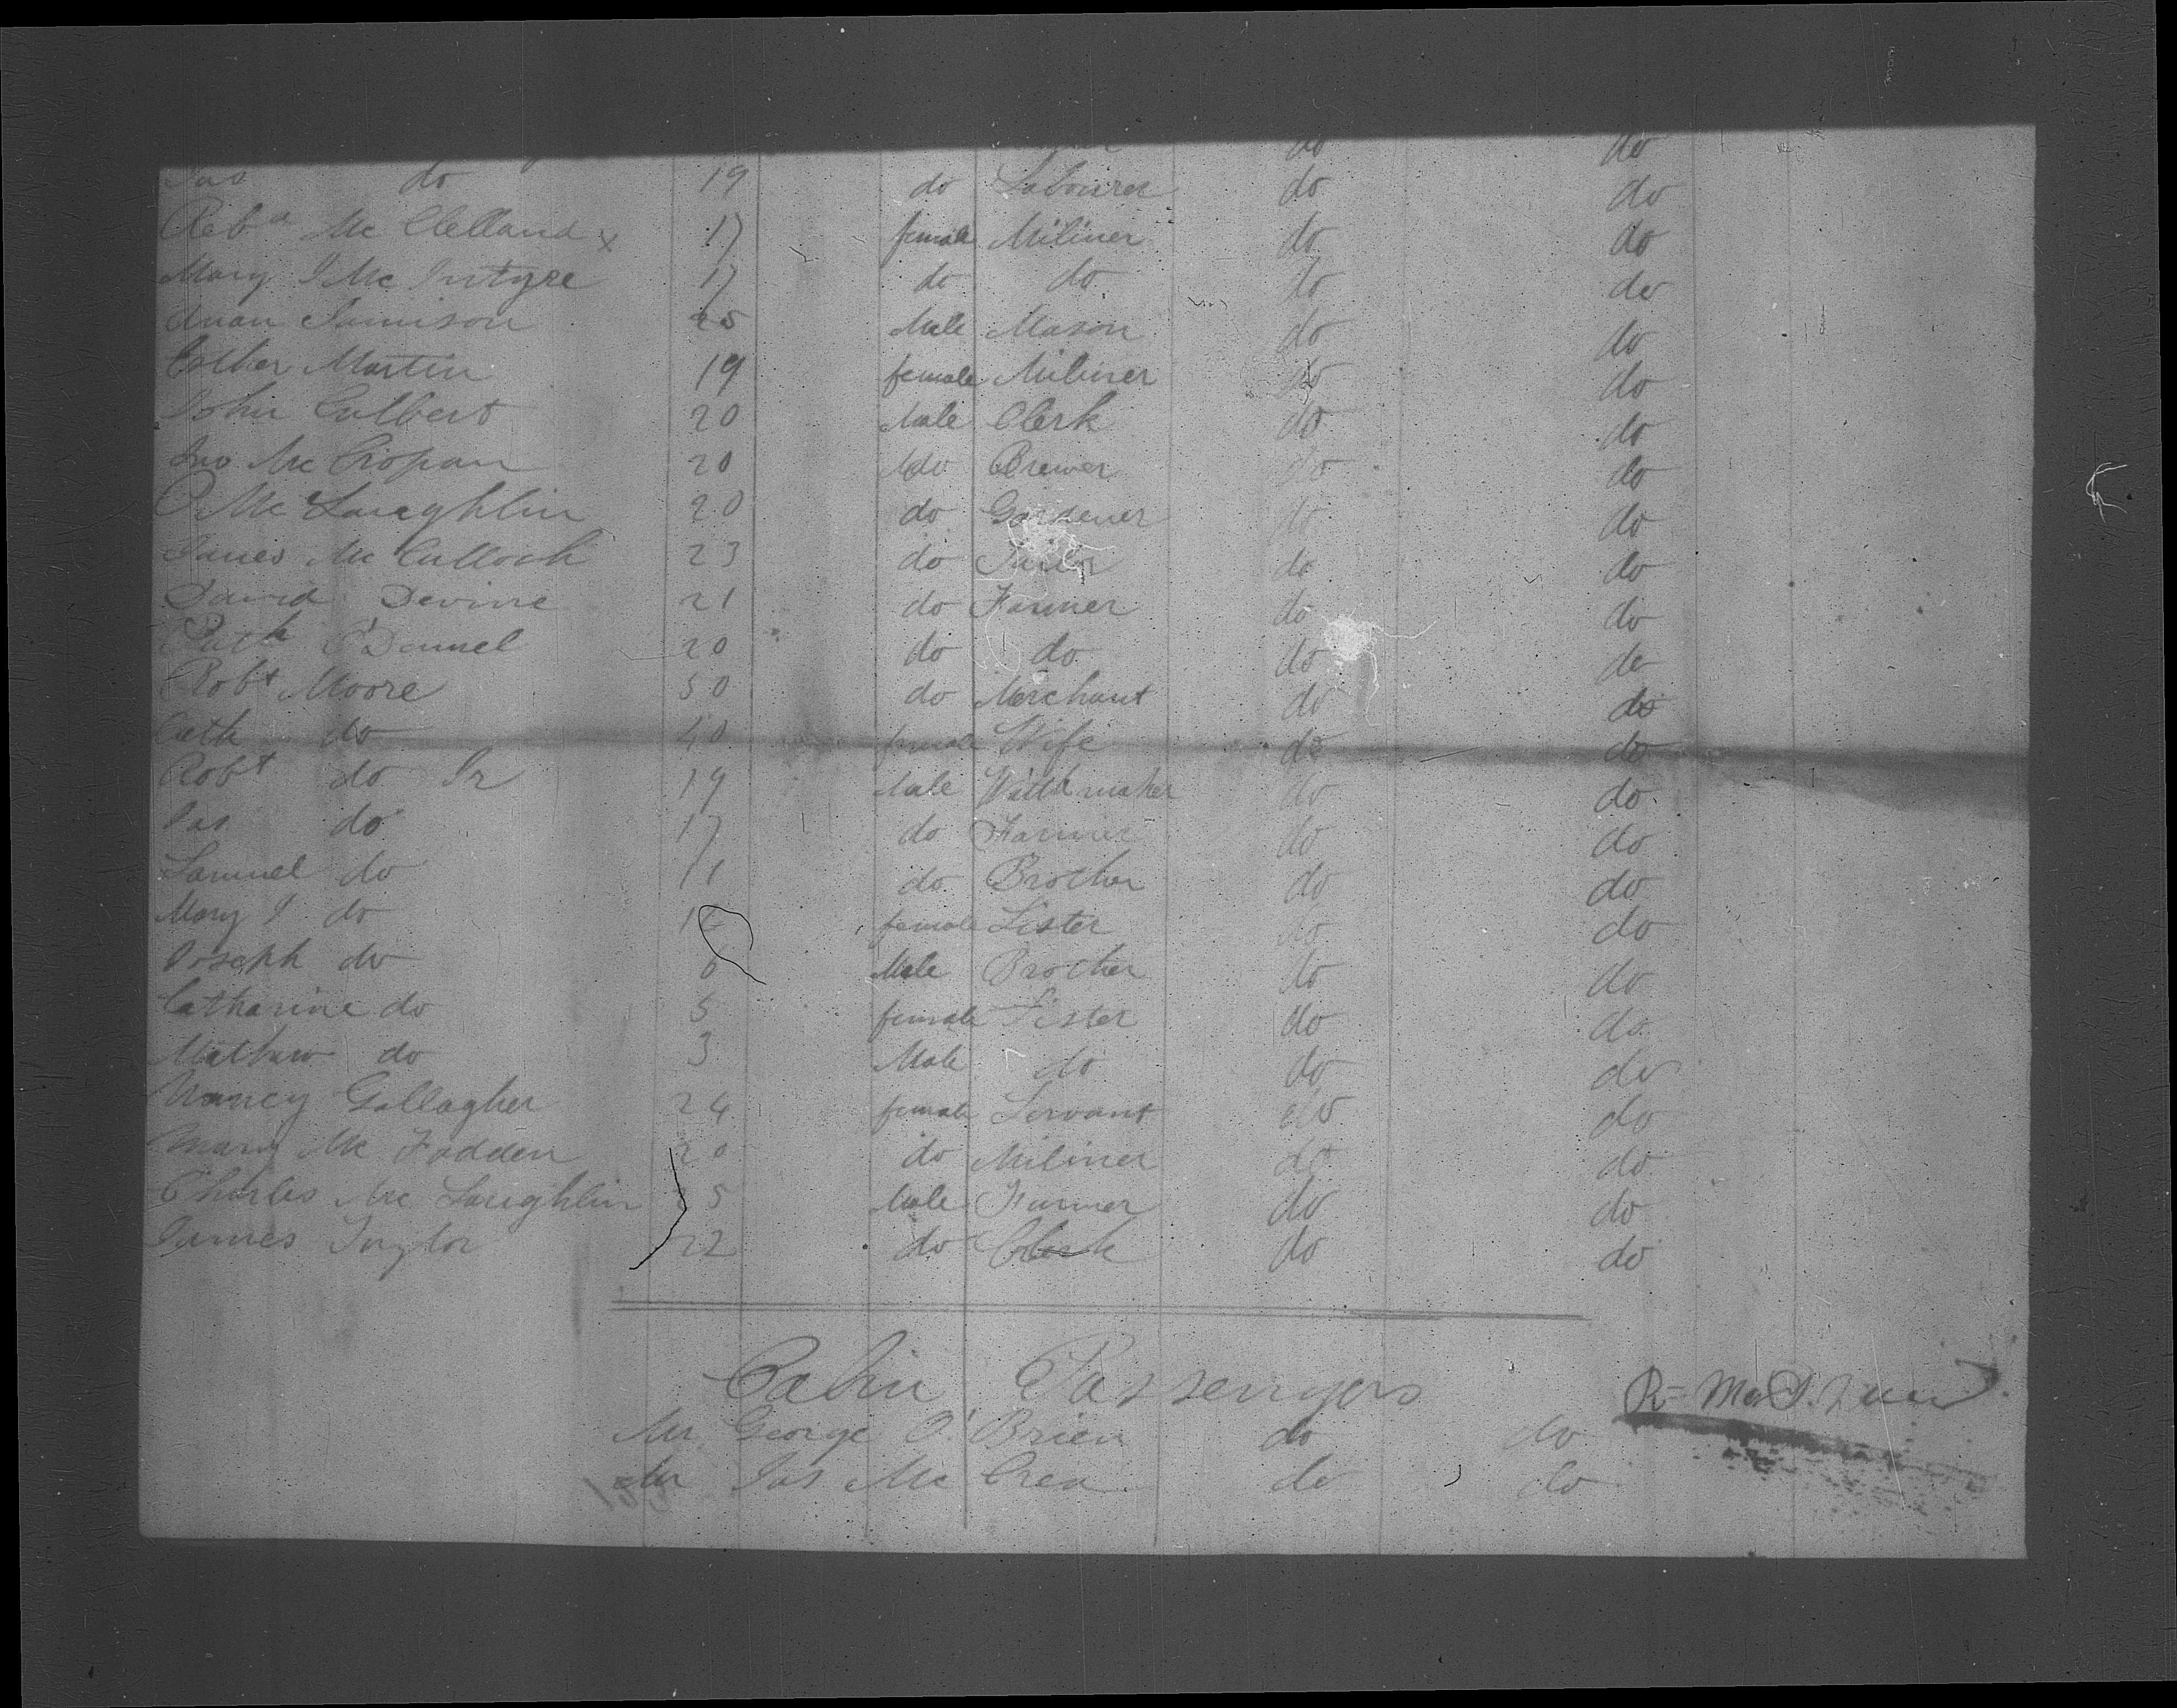 do do
Jas do 19 do Labourer do do
Reba Mc Clelland x 17 female Miliner do do
Mary J Mc Intyre 17 do do do do
Jamison 25 Male Mason do do
Esther Martin 19 female Miliner do do
John Culbert 20 Male Clerk do do
Jno Mc Cropan 20 do Brewer do do
P Mc Laughlin 20 do Gardener do do
James Mc Culloch 23 do Tailor do do
David Devine 21 do Farmer do do
Patk O'Donnel 20 do do do do
Robt Moore 50 do Merchant do do
Cath do 40 female Wife do do
Robt do Jr 19 Male Watch maker do do
Jas do 17 do Farmer do do
Samuel do 11 do Brother do do
Mary J do female Sister do do
Joseph do 6 Male Brother do do
Catharine do 5 female Sister do do
Mathew do 3 Male do do do
Nancy Gallagher 24 female Servant do do
Mary Mc Fadden 20 do Miliner do do
Charles Mc Laughlin 25 Male Farmer do do
James Taylor 22 do Clerk do do
Cabin Passengers
Mr George O'Brien do do
Mr Jas Mc Crea do do